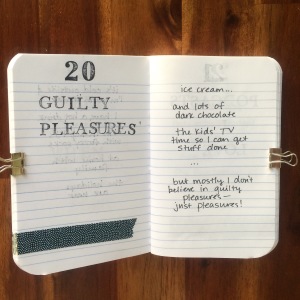 20
GUILTY
PLEASURES
ice cream...
and lots of
dark chocolate
the kids' TV
time so I can get
stuff done
...
but mostly I don't
believe in guilty
pleasures—
just pleasures!